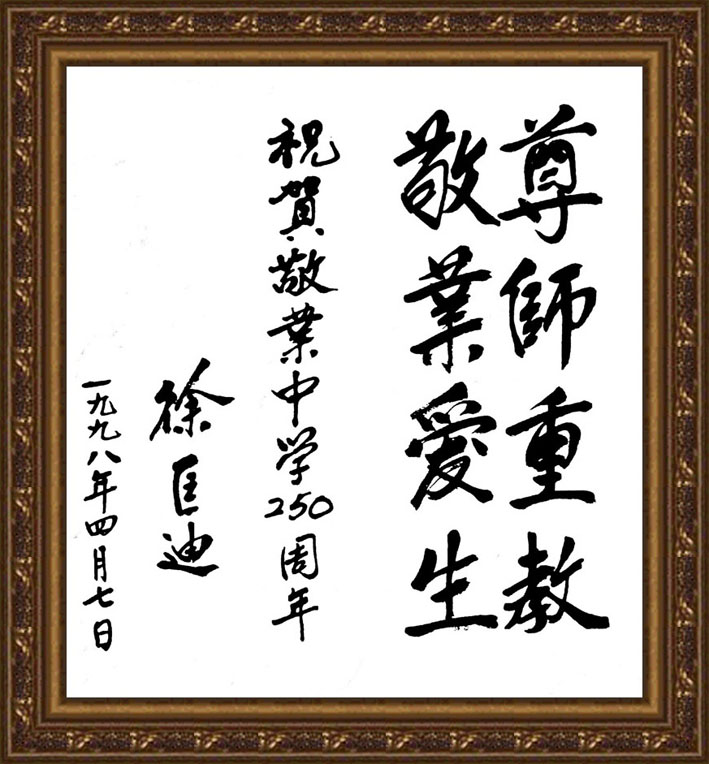 尊師重教
敬業愛生
祝賀敬業中学250周年
徐匡迪
一九九八年四月七日